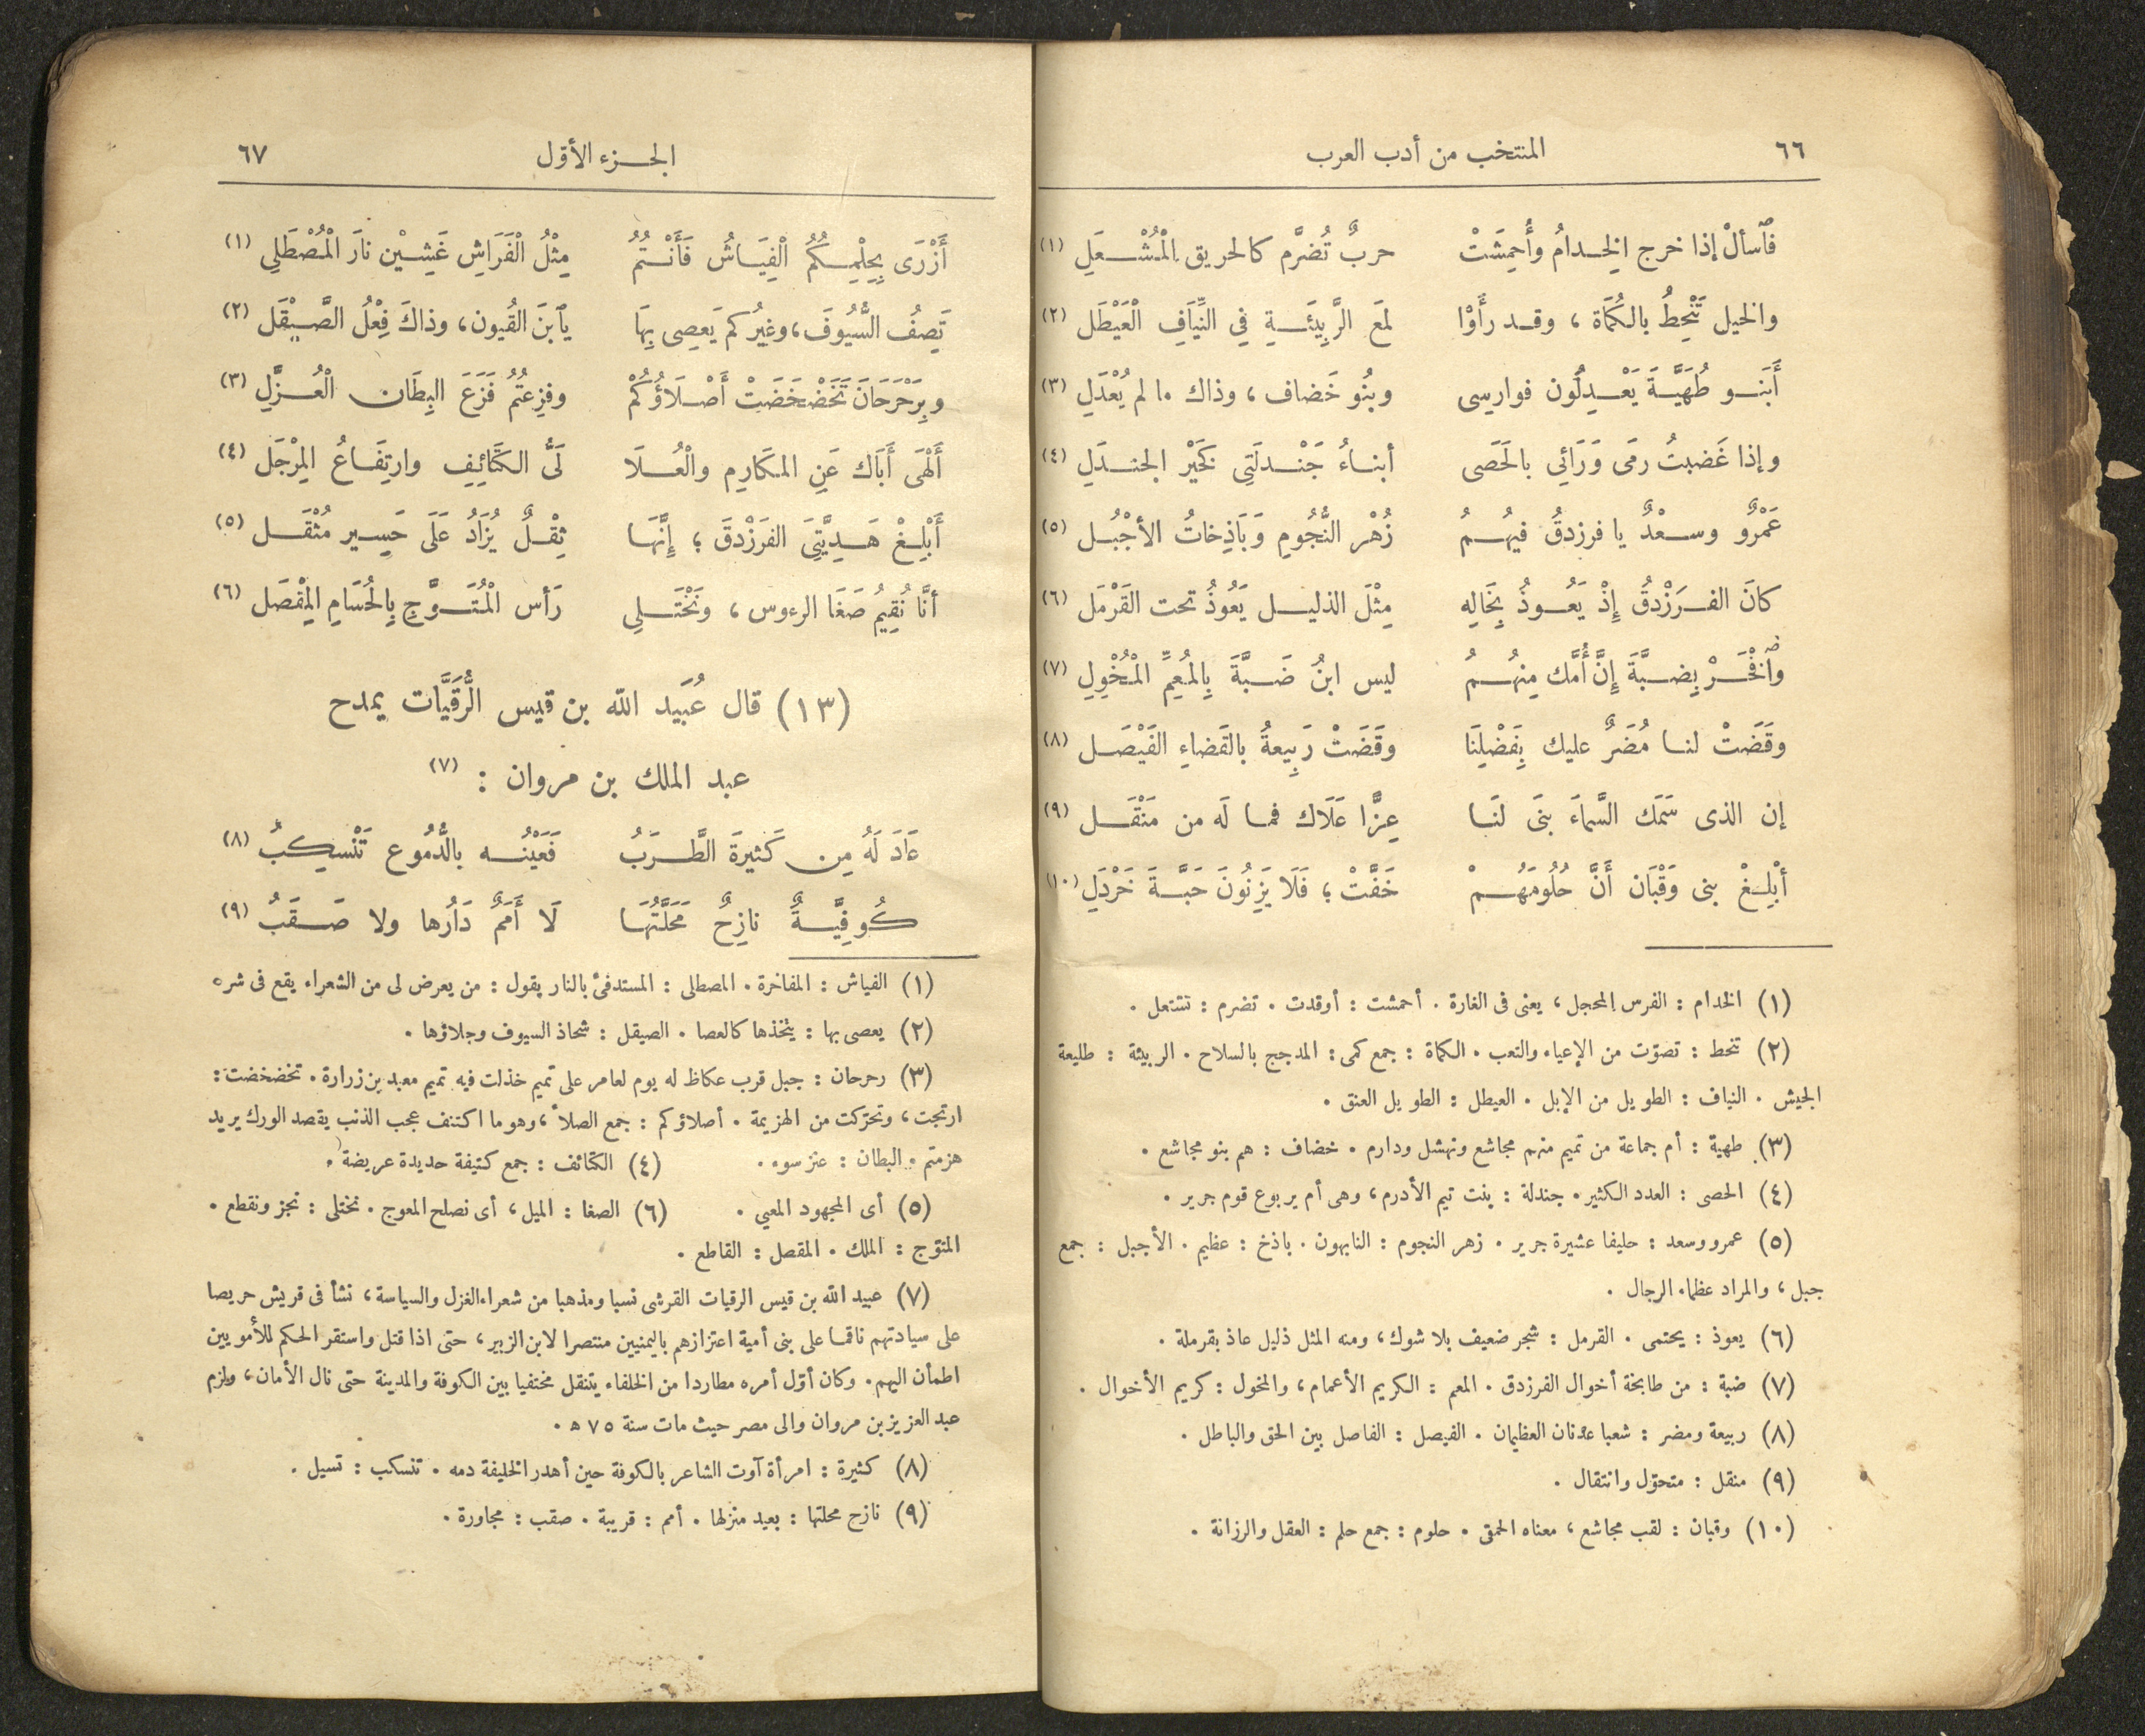 ٦٦ المنتخب من أدب العرب
فٱسألْ إذا خرج الخِدامُ وأُحمِشَتْ حربٌ تُضرَّم كالحريق المُشْعَلِ (١)
والخيل تَنْحِطُ بالكُمَاة ، وقد رأَوْا لمَعَ الرَّبِيئَةِ فِي النِّيَافِ الْعَيْطَل (٢)
أَبَنو طُهَيَّةَ يَعْدِلُون فوارسِى وبنُو خَضاف ، وذاك ما لم يُعْدَلِ (٣)
وإذا غَضبتُ رمَى وَرَائِي بالحَصَى أبناءُ جَنْدلَتِى كَخَيْر الجندَلِ (٤)
عَمْرٌو وسعْدٌ يا فرزدقُ فيهُمُ زُهْر النُّجُومِ وَبَاذِخاتُ الأجْبُل (٥)
كانَ الفرَزْدقُ إِذْ يَعُوذُ بِخَالِهِ مِثْلَ الذليل يَعُوذُ تحت القَرْمَل (٦)
وٱفْخَرْ بِضبَّةَ إِنَّ أُمَّك مِنهُمُ ليس ابنُ ضَبَّةَ بِالمُعِمِّ المُخْوِلِ (٧)
وقَضَتْ لنا مُضَرٌ عليك بِفَضْلِنَا وقَضَتْ رَبِيعةُ بالقَضاءِ الفَيْصَل (٨)
إن الذى سَمَك السَّماءَ بنَى لنَا عِزًّا عَلَاك فما لَه من مَنْقَل (٩)
أبْلِغْ بنى وَقْبَان أَنَّ حُلُومَهُمْ خَفَّتْ ؛ فَلَا يَزِنُونَ حَبَّةَ خَرْدَلِ (١٠)
(١) الخدام : الفرس المحجل ، يعنى فى الغارة . أحمشت : أوقدت . تضرم : تشتعل .
(٢) تنحط : تصوّت من الإعياء والتعب . الكماة : جمع كمى : المدجج بالسلاح . الربيئة : طليعة
الجيش . النياف : الطويل من الإبل . العيطل : الطويل العنق .
(٣) طهية : أم جماعة من تميم منهم مجاشع ونهشل ودارم . خضاف : هم بنو مجاشع .
(٤) الحصى : العدد الكثير . جندلة : بنت تيم الأدرم ، وهى أم يربوع قوم جرير .
(٥) عمرو وسعد : حليفا عشيرة جرير . زهر النجوم : النابهون . باذخ : عظيم . الأجبل : جمع
جبل ، والمراد عظماء الرجال .
(٦) يعوذ : يحتمى . القرمل : شجر ضعيف بلا شوك ، ومنه المثل ذليل عاذ بقرملة .
(٧) ضبة : من طابخة أخوال الفرزدق . المعم : الكريم الأعمام ، والمخول : كريم الأخوال .
(٨) ربيعة ومضر : شعبا عدنان العظيمان . الفيصل : الفاصل بين الحق والباطل .
(٩) منقل : متحوّل وانتقال .
(١٠) وقبان : لقب مجاشع ، معناه الحمق . حلوم : جمع حلم : العقل والرزانة .
الجزء الأوّل ٦٧
أَزْرَى بِحِلْمِكُمُ الْفِيَاشُ فَأَنْتُمُ مِثْلُ الْفَرَاشِ غَشِيْن نارَ الْمُصْطَلِى (١)
تَصِفُ السُّيُوفَ ، وغيرُكم يَعصِى بِهَا يٱبنَ القُيون ، وذاكَ فِعْلُ الصَّيْقَل (٢)
وبِرَحْرَحَانَ تَخَضْخَضَتْ أَصْلَاؤُكُمْ وفزِعتُمُ فَزَعَ البِطَان الْعُزَّلِ (٣)
أَلْهَى أَبَاك عَنِ المكَارِم والْعُلَا لَىُّ الكتَائِفِ وارتِفَاعُ المِرْجَل (٤)
أَبْلِغْ هَدِيَّتِىَ الفَرَزْدقَ ؛ إِنَّهَا ثِقْلٌ يُزَادُ عَلَى حَسِير مُثْقَل (٥)
أنَّا نُقِيمُ صَغَا الرءوس ، ونَخْتَلِى رَأس الْمُتَوَّجِ بِالحُسَامِ المِقْصَل (٦)
(١٣) قال عُبَيد الله بن قيس الرُّقَيَّات يمدح
عبد الملك بن مروان : (٧)
عَادَ لَهُ مِن كَثِيرةَ الطَّرَبُ فَعَيْنُه بالدُّمُوع تَنْسكِبُ (٨)
كُوفِيَّةٌ نازِحٌ مَحَلَّتُهَا لَا أَمَمٌ دَارُها ولا صَقَبُ (٩)
(١) الفياش : المفاخرة . المصطلى : المستدفئ بالنار يقول : من يعرض لى من الشعراء يقع فى شره
(٢) يعصى بها : يتخذها كالعصا . الصيقل : شحاذ السيوف وجلاؤها .
(٣) رحرحان : جبل قرب عكاظ له يوم لعامر على تميم خذلت فيه تميم معبد بن زرارة . تخضخضت :
ارتجت ، وتحرّكت من الهزيمة . أصلاؤكم : جمع الصلأ ، وهو ما اكتنف عجب الذنب يقصد الورك يريد
هزمتم . البطان : عنز سوء . (٤) الكتائف : جمع كتيفة حديدة عريضة .
(٥) أى المجهود المعيي . (٦) الصغا : الميل ، أى نصلح المعوج . نختلى : نجز ونقطع .
المتوّج : الملك . المقصل : القاطع .
(٧) عبيد الله بن قيس الرقيات القرشى نسبا ومذهبا من شعراء الغزل والسياسة ، نشأ فى قريش حريصا
على سيادتهم ناقما على بنى أمية اعتزازهم باليمنيين منتصرا لابن الزبير ، حتى اذا قتل واستقر الحكم للأمويين
اطمأن اليهم . وكان أوّل أمره مطاردا من الخلفاء يتنقل مختفيا بين الكوفة والمدينة حتى نال الأمان ، ولزم
عبد العزيز بن مروان والى مصر حيث مات سنة ٧٥ ه .
(٨) كثيرة : امرأة آوت الشاعر بالكوفة حين أهدر الخليفة دمه . تنسكب : تسيل .
(٩) نازح محلتها : بعيد منزلها . أمم : قريبة . صقب : مجاورة .